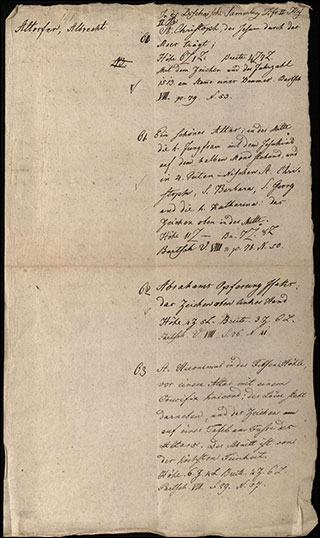 Altorfer, Albrecht
60
St. Christoph, der Jesum durch das
Meer trägt;
Höhe 6 Z. L. Breite 4 Z. L.
Mit dem Zeichen und der Jahrzahl
1513. an einem Baume. Bartsch
VIII. pg. 79. N. 53.
61 Ein schönes Altar; in der Mitte
die h. Jungfrau mit dem Jesukind
auf dem halben Mond stehend, und
in 4 Seiten-Nischen St. Chri-
stoph, S. Barbara, S. Georg
und die h. Katharina: das
Zeichen oben in der Mitte.
Höhe 11 Z. — Br. 7 Z. 8 L.
Bartsch V. VIII. pg. 78. N. 50.
62 Abrahams Opferung Isaks,
das Zeichen oben linker Hand
Höhe 4 Z. 5 L. Breite. 3 Z. 6 L.
Bartsch. V. VIII. S. 76 N. 41
63 St. Hieronimus in der Felsen Höhle,
vor einem Altar mit einem
Crucifix knieend; der Löw steht
darneben, und das Zeichen am
auf einer Tafel am Fusse des
Altars. Der Schnitt ist von
der höchsten Feinheit.
Höhe. 6. Z. 4 L. Breite. 4 Z. 6 L.
Bartsch. VIII. S. 79. N. 57.